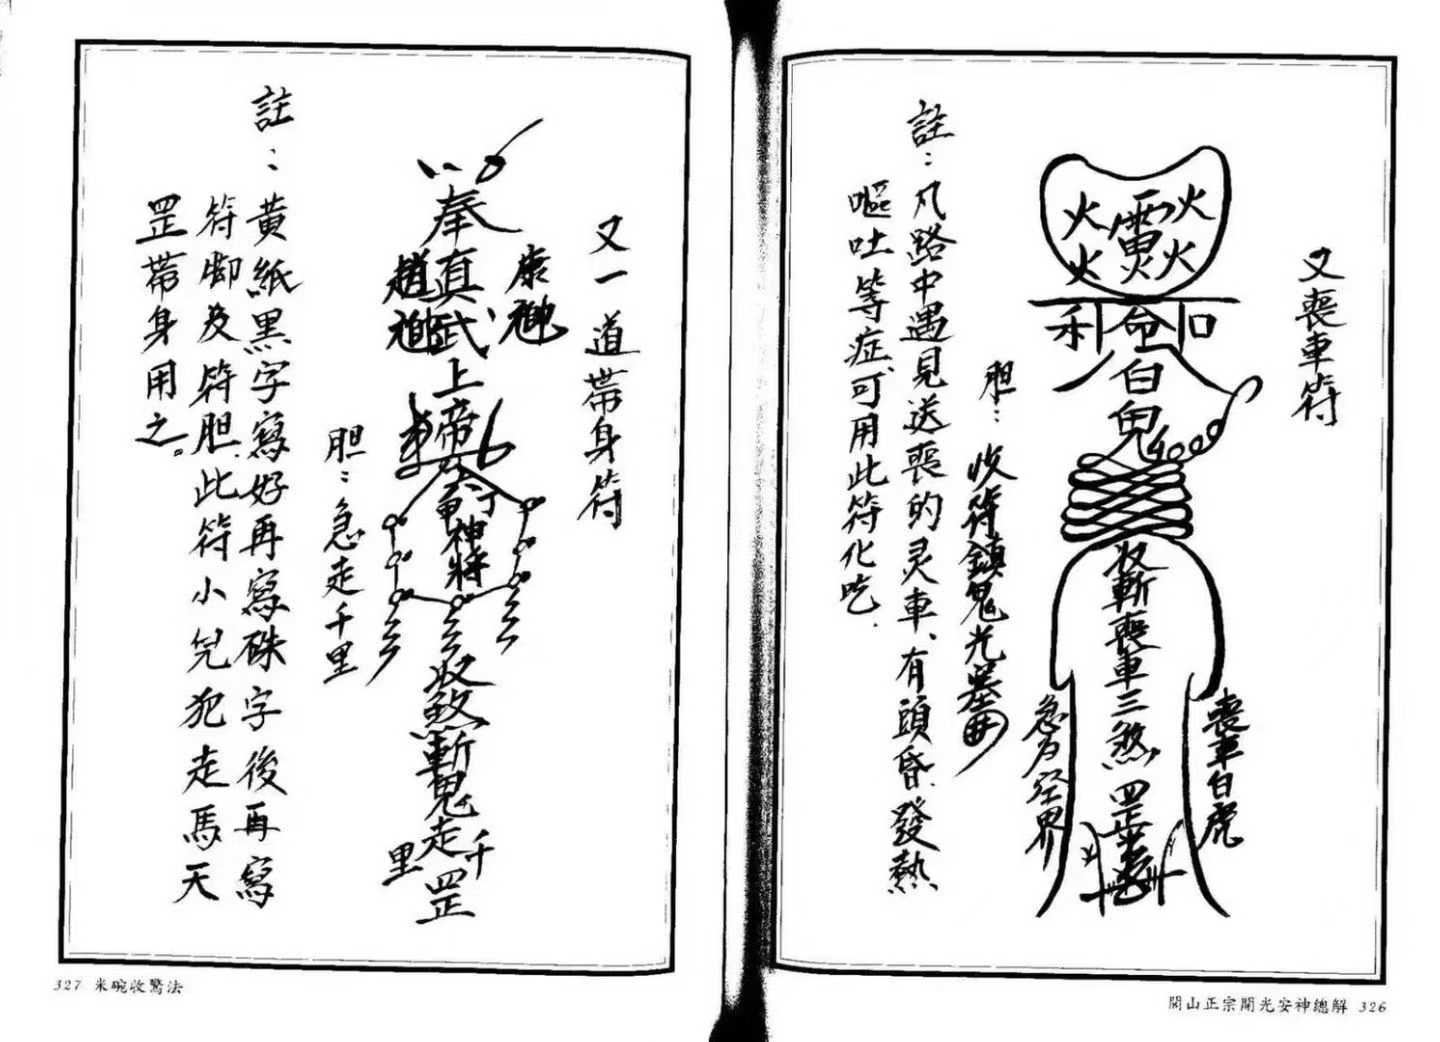 又喪車符
火 火
雷
火 火 火
利 命 口
白
兒
收斬喪車三煞罡
喪車白虎
胆：收符鎮鬼光墓
註：凡路中遇見送喪的灵車、有頭昏.發熱
嘔吐等症、可用此符化吃.
開山正宗開光安神總解 326
又一道帶身符
奉真武上帝
康
趙
神將
收煞斬鬼走千里罡
胆：急走千里
註：黃紙黑字寫好再寫硃字後再寫
符腳及符胆.此符小兒犯走馬天
罡帶身用之。
327 米碗收驚法